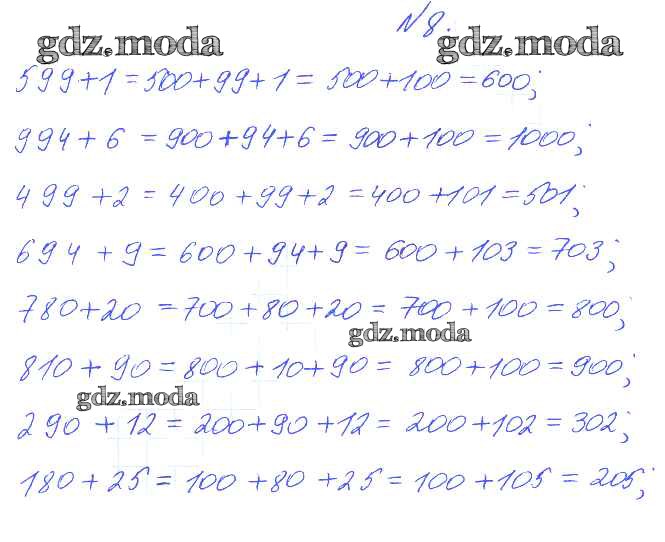 №8.
gdz.moda gdz.moda
599+1=500+99+1= 500+100=600;
994+6 =900+94+6= 900+100=1000;
499+2=400+99+2=400+101=501;
694+9=600+94+9=600+103=703;
780+20 =700+80+20=700+100=800;
gdz.moda
810+90=800+10+90= 800+100=900;
gdz.moda
290+12=200+90+12=200+102=302;
180+25=100+80+25=100+105=205;